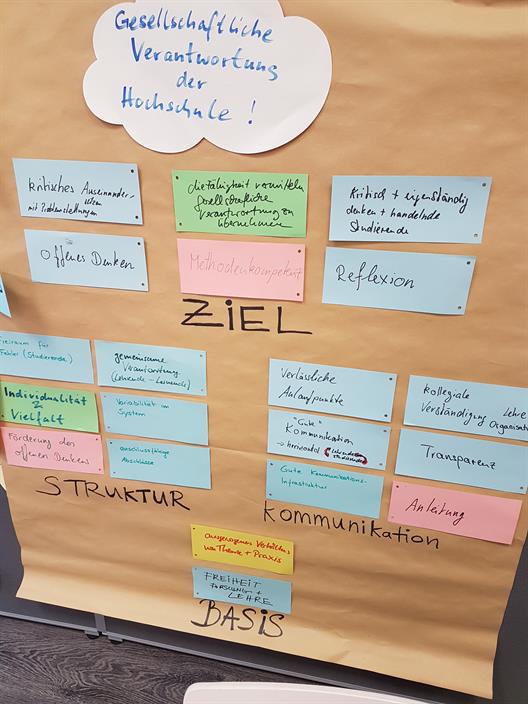 Gesellschaftliche
Verantwortung
der
Hochschule!
kritisches Auseinander-
setzen
mit Problemstellungen
die Fähigkeit vermitteln
gesellschaftliche
Verantwortung zu
übernehmen
Kritisch + eigenständig
denken + handelnde
Studierende
Offenes Denken
Methodenkompetenz
Reflexion
ZiEL
Freiraum für
Fehler (Studierende)
gemeinsame
Verantwortung
(Lehrende - Lernende)
Individualität
&
Vielfalt
Variabilität im
System
Förderung des
offenen Denkens
anschlussfähige
Abschlüsse
STRUKTUR
Verlässliche
Anlaufpunkte
Kollegiale Lehre
Verständigung
"Gute"
Kommunikation
Transparenz
Gute Kommunikations-
Infrastruktur
Anleitung
Kommunikation
ausgewogenes Verhältnis
von Theorie + Praxis
FREIHEIT
FORSCHUNG +
LEHRE
BASiS